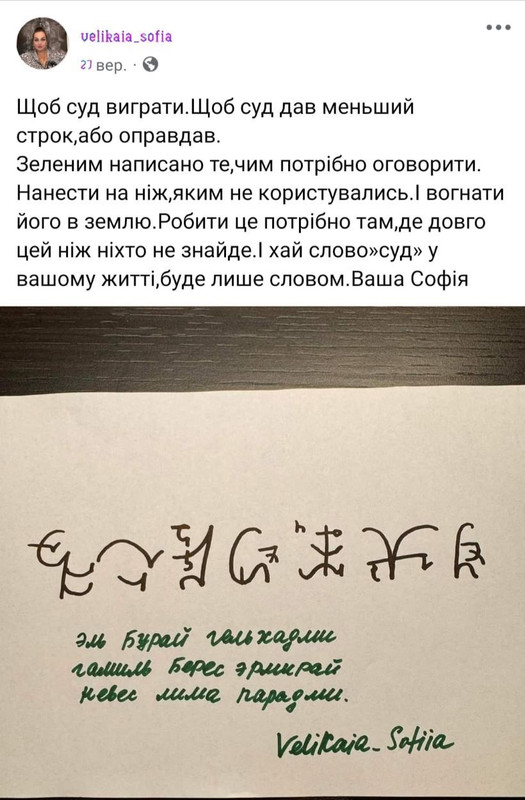 velikaia_sofia
27 вер.
Щоб суд виграти.Щоб суд дав меньший
строк,або оправдав.
Зеленим написано те,чим потрібно оговорити.
Нанести на ніж,яким не користувались.І вогнати
його в землю.Робити це потрібно там,де довго
цей ніж ніхто не знайде.І хай слово»суд» у
вашому житті,буде лише словом.Ваша Софія
эль Бурай гельхадми
гамиль Берес эрмкрай
невес лима парадми.
Velikaia_Sofiia